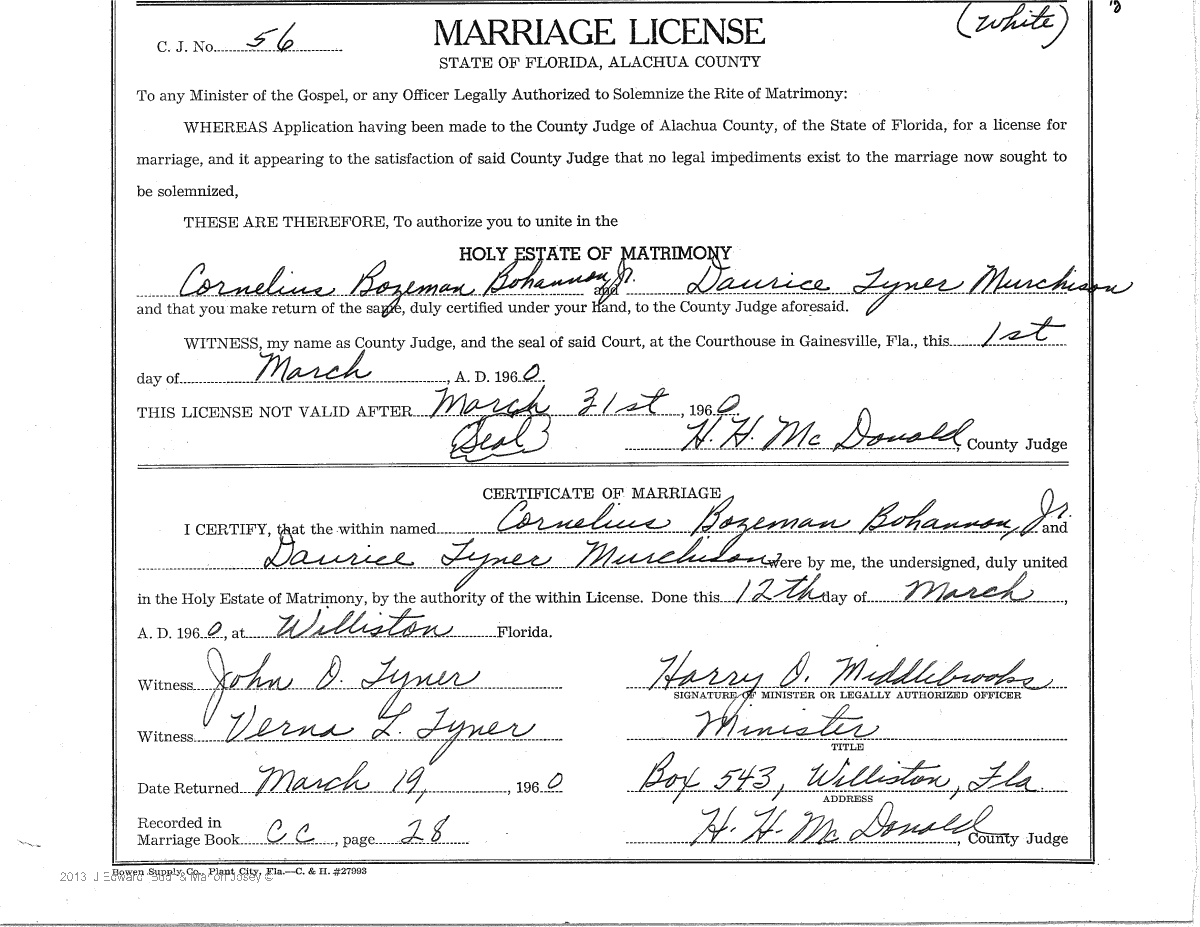 (White)
C. J. No. 56
MARRIAGE LICENSE
STATE OF FLORIDA, ALACHUA COUNTY
To any Minister of the Gospel, or any Officer Legally Authorized to Solemnize the Rite of Matrimony:
WHEREAS Application having been made to the County Judge of Alachua County, of the State of Florida, for a license for
marriage, and it appearing to the satisfaction of said County Judge that no legal impediments exist to the marriage now sought to
be solemnized,
THESE ARE THEREFORE, To authorize you to unite in the
HOLY ESTATE OF MATRIMONY
Cornelius Bozeman Bohannon, Jr. and Daurice Tyner Murchison
and that you make return of the same, duly certified under your hand, to the County Judge aforesaid.
WITNESS, my name as County Judge, and the seal of said Court, at the Courthouse in Gainesville, Fla., this 1st
day of March, A. D. 1960.
THIS LICENSE NOT VALID AFTER March 31st, 1960.
Seal H. H. McDonald, County Judge
CERTIFICATE OF MARRIAGE
I CERTIFY, that the within named Cornelius Bozeman Bohannon, Jr. and
Daurice Tyner Murchison were by me, the undersigned, duly united
in the Holy Estate of Matrimony, by the authority of the within License. Done this 12th day of March,
A. D. 1960, at Williston Florida.
Witness John O. Tyner Harry O. Middlebrooks
SIGNATURE OF MINISTER OR LEGALLY AUTHORIZED OFFICER
Witness Verna L. Tyner Minister
TITLE
Date Returned March 19, 1960 Box 543, Williston, Fla.
ADDRESS
Recorded in
Marriage Book CC, page 28 H. H. McDonald, County Judge
Bowen Supply Co., Plant City, Fla.—C. & H. #27993
2013 J Edward "Bud" & Marion Josey ©